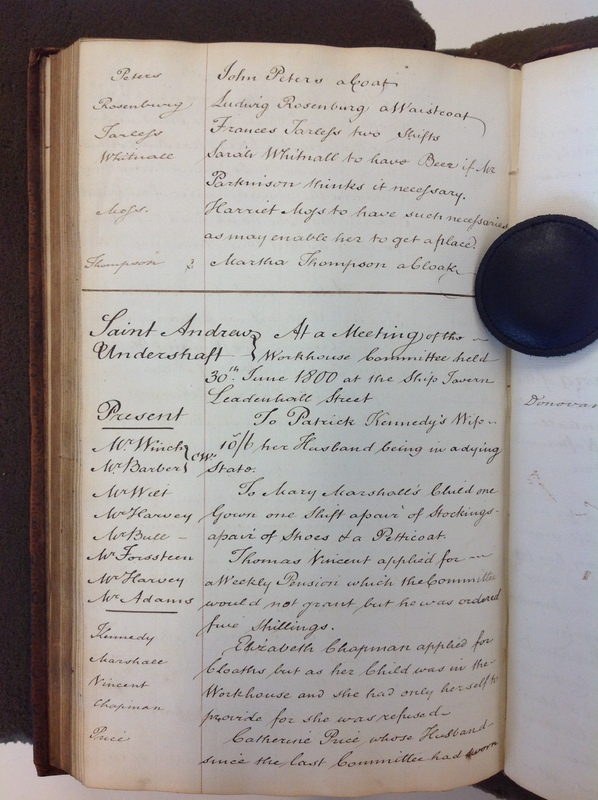 Peters John Peters a Coat
Rosenburg Ludwig Rosenburg a Waistcoat
Tarless Frances Tarless two Shifts
Whitnall Sarah Whitnall to have Beer if Mr
Parkinson thinks it necessary.
Moss. Harriet Moss to have such necessaries
as may enable her to get a place.
Thompson Martha Thompson a Cloak
Saint Andrew At a Meeting of the
Undershaft Workhouse Committee held
30th June 1800 at the Ship Tavern
Leadenhall Street
Present To Patrick Kennedy's Wife
Mr Winch 10/6 her Husband being in a dying
Mr Barber CWs State.
Mr Wilt To Mary Marshall's Child one
Mr Harvey Gown one Shift a pair of Stockings
Mr Bull a pair of Shoes & a Petticoat.
Mr Forssteen Thomas Vincent applied for
Mr Harvey a Weekly Pension which the Committee
Mr Adams would not grant but he was ordered
five Shillings.
Kennedy Elizabeth Chapman applied for
Marshall Cloaths but as her Child was in the
Vincent Workhouse and she had only herself to
Chapman provide for she was refused
Price Catherine Price whose Husband
since the last Committee had sworn
Donovan